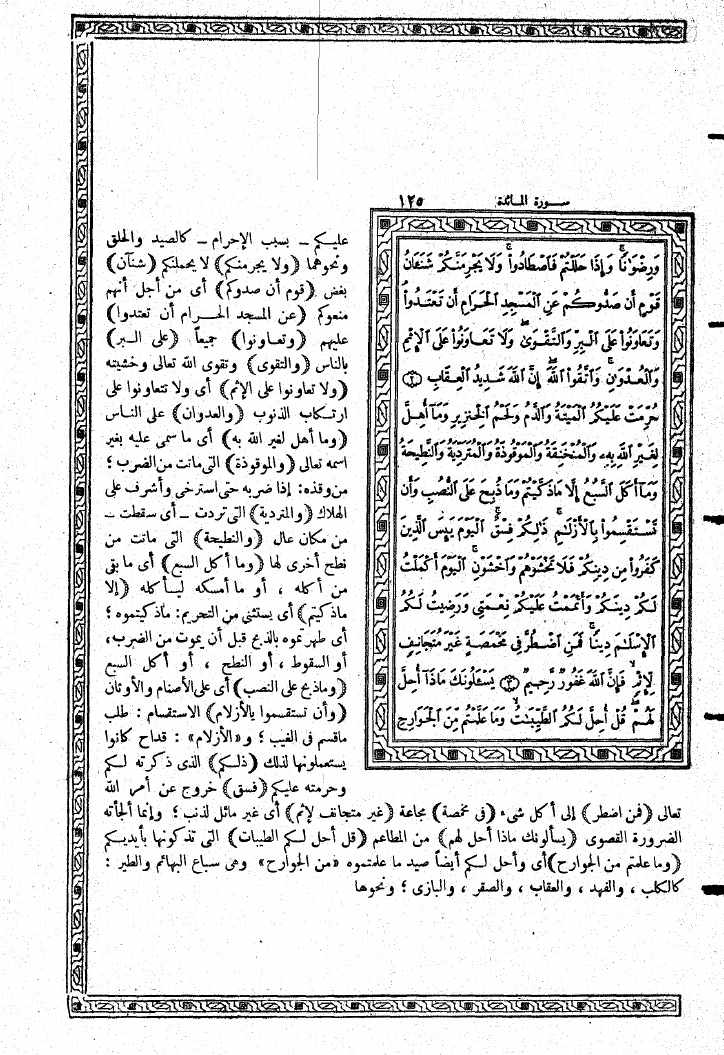 سورة المائدة ١٢٥
وَرِضْوَٰنًا ۚ وَإِذَا حَلَلْتُمْ فَٱصْطَادُوا۟ ۚ وَلَا يَجْرِمَنَّكُمْ شَنَـَٔانُ
قَوْمٍ أَن صَدُّوكُمْ عَنِ ٱلْمَسْجِدِ ٱلْحَرَامِ أَن تَعْتَدُوا۟ ۘ
وَتَعَاوَنُوا۟ عَلَى ٱلْبِرِّ وَٱلتَّقْوَىٰ ۖ وَلَا تَعَاوَنُوا۟ عَلَى ٱلْإِثْمِ
وَٱلْعُدْوَٰنِ ۚ وَٱتَّقُوا۟ ٱللَّهَ ۖ إِنَّ ٱللَّهَ شَدِيدُ ٱلْعِقَابِ ﴿٢﴾
حُرِّمَتْ عَلَيْكُمُ ٱلْمَيْتَةُ وَٱلدَّمُ وَلَحْمُ ٱلْخِنزِيرِ وَمَآ أُهِلَّ
لِغَيْرِ ٱللَّهِ بِهِۦ وَٱلْمُنْخَنِقَةُ وَٱلْمَوْقُوذَةُ وَٱلْمُتَرَدِّيَةُ وَٱلنَّطِيحَةُ
وَمَآ أَكَلَ ٱلسَّبُعُ إِلَّا مَا ذَكَّيْتُمْ وَمَا ذُبِحَ عَلَى ٱلنُّصُبِ وَأَن
تَسْتَقْسِمُوا۟ بِٱلْأَزْلَـٰمِ ۚ ذَٰلِكُمْ فِسْقٌ ۗ ٱلْيَوْمَ يَئِسَ ٱلَّذِينَ
كَفَرُوا۟ مِن دِينِكُمْ فَلَا تَخْشَوْهُمْ وَٱخْشَوْنِ ۚ ٱلْيَوْمَ أَكْمَلْتُ
لَكُمْ دِينَكُمْ وَأَتْمَمْتُ عَلَيْكُمْ نِعْمَتِى وَرَضِيتُ لَكُمُ
ٱلْإِسْلَـٰمَ دِينًا ۚ فَمَنِ ٱضْطُرَّ فِى مَخْمَصَةٍ غَيْرَ مُتَجَانِفٍ
لِّإِثْمٍ ۙ فَإِنَّ ٱللَّهَ غَفُورٌ رَّحِيمٌ ﴿٣﴾ يَسْـَٔلُونَكَ مَاذَآ أُحِلَّ
لَهُمْ ۖ قُلْ أُحِلَّ لَكُمُ ٱلطَّيِّبَـٰتُ ۙ وَمَا عَلَّمْتُم مِّنَ ٱلْجَوَارِحِ
عليكم - بسبب الإحرام - كالصيد والحلق
ونحوهما (ولا يجرمنكم) لا يحملنكم (شنآن)
بغض (قوم أن صدوكم) أى من أجل أنهم
منعوكم (عن المسجد الحرام أن تعتدوا)
عليهم (وتعاونوا) جميعاً (على البر)
بالناس (والتقوى) وتقوى الله تعالى وخشيته
(ولا تعاونوا على الإثم) أى ولا تتعاونوا على
ارتكاب الذنوب (والعدوان) على الناس
(وما أهل لغير الله به) أى ما سمى عليه بغير
اسمه تعالى (والموقوذة) التى ماتت من الضرب ؛
من وقذه : إذا ضربه حتى استرخى وأشرف على
الهلاك (والمتردية) التى تردت - أى سقطت -
من مكان عال (والنطيحة) التى ماتت من
نطح أخرى لها (وما أكل السبع) أى ما بقى
من أكله ، أو ما أمسكه ليأكله (إلا
ما ذكيتم) أى يستثنى من التحريم : ما ذكيتموه ؛
أى طهرتموه بالذبح قبل أن يموت من الضرب،
أو السقوط ، أو النطح ، أو أكل السبع
(وما ذبح على النصب) أى على الأصنام والأوثان
(وأن تستقسموا بالأزلام) الاستقسام : طلب
ما قسم فى الغيب ؛ و«الأزلام» : قداح كانوا
يستعملونها لذلك (ذلكم) الذى ذكرته لكم
وحرمته عليكم (فسق) خروج عن أمر الله
تعالى (فمن اضطر) إلى أكل شىء (فى مخمصة) مجاعة (غير متجانف لإثم) أى غير مائل لذنب ؛ وإنما ألجأته
الضرورة القصوى (يسألونك ماذا أحل لهم) من المطاعم (قل أحل لكم الطيبات) التى تذكونها بأيديكم
(وما علمتم من الجوارح) أى وأحل لكم أيضاً صيد ما علمتموه «من الجوارح» وهى سباع البهائم والطير :
كالكلب ، والفهد ، والعقاب ، والصقر ، والبازى ؛ ونحوها